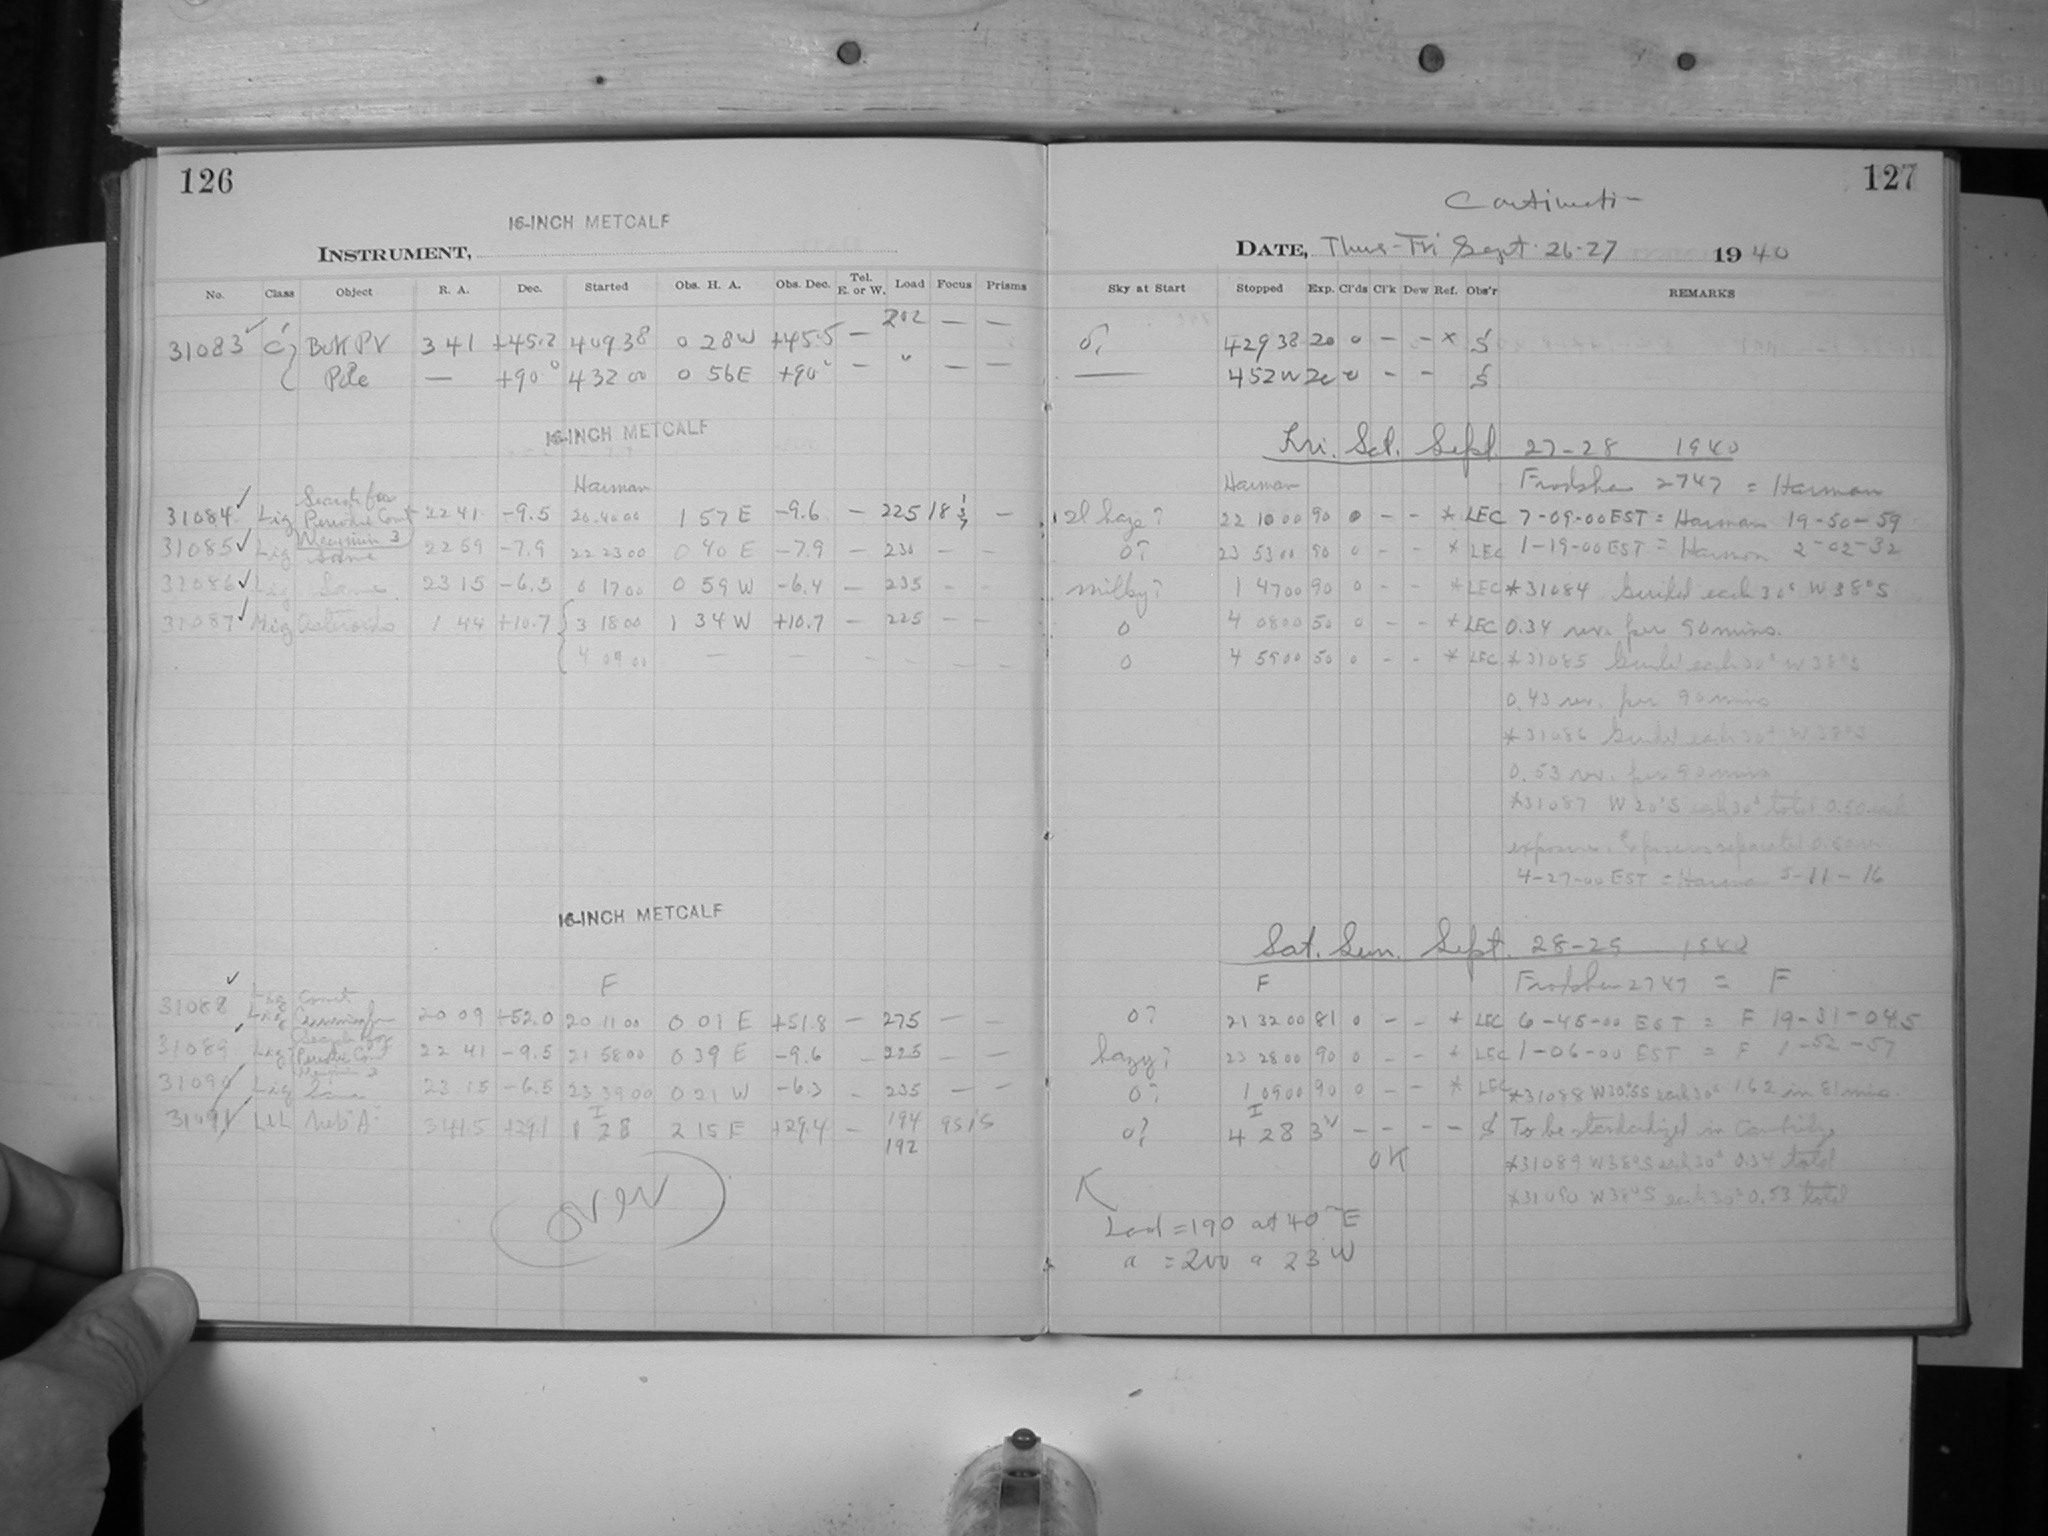 126
16-INCH METCALF
INSTRUMENT,
No. Class Object R. A. Dec. Started Obs. H. A. Obs. Dec. Tel. E. or W. Load Focus Prisms
202 — —
31083 C BKPV 3 41 +45.2 4 09 38 0 28 W +45.5 —
Pole — +90° 4 32 00 0 56 E +90° — " — —
16-INCH METCALF
Harman
31084 Lig Search for Periodic Comet 22 41 -9.5 20 40 00 1 57 E -9.6 — 225 18 —
31085 Lig same 22 59 -7.9 22 23 00 0 40 E -7.9 — 230 - -
31086 Lig Same 23 15 -6.5 0 17 00 0 59 W -6.4 — 235 - -
31087 Asteroids 1 44 +10.7 3 18 00 1 34 W +10.7 — 225 - -
4 09 00 — — - - - -
16-INCH METCALF
F
31088 Lig Comet Cunningham 20 09 +52.0 20 11 00 0 01 E +51.8 — 275 — —
31089 Lig Search for Periodic Comet 22 41 -9.5 21 58 00 0 39 E -9.6 - 225 — —
31090 Lig Same 23 15 -6.5 23 39 00 0 21 W -6.3 - 235 — —
31091 +29.1 1 28 2 15 E +29.4 — 194
192
over
127
Continuation
DATE, Thurs-Fri Sept. 26-27 1940
Sky at Start Stopped Exp. Cl'ds Cl'k Dew Ref. Obs'r REMARKS
4 29 38 20 0 - - x S
4 52 20 0 - - S
Fri. Sat. Sept. 27-28 1940
Harman Frodsham 2747 = Harman
haze? 22 10 00 90 0 - - * LEC 7-09-00 EST = Harman 19-50-59
0? 23 53 00 90 0 - - * LEC 1-19-00 EST = Harman 2-02-32
milky? 1 47 00 90 0 - - * LEC *31084 Guided each 30s W 38° S
0 4 08 00 50 0 - - * LEC 0.34 rev. per 90 mins.
0 4 59 00 50 0 - - * LEC *31085 Guided each 30s W 38° S
0.43 rev. per 90 mins
*31086 Guided each 30s W 38° S
0.53 rev. per 90 mins
*31087 W 20° S each 30s total 0.50 each
exposure. Exposures separated
4-27-00 EST = Harman 5-11-16
Sat. Sun. Sept. 28-29 1940
F Frodsham 2747 = F
0? 21 32 00 81 0 - - * LEC 6-45-00 EST = F 19-31-04.5
hazy? 23 28 00 90 0 - - * LEC 1-06-00 EST = F 1-52-57
0? 1 09 00 90 0 - - * LEC *31088 W 30° S each 30s 1.62 in 81 mins.
0? 4 28 - - - - S To be standardized in Cambridge
OK *31089 W 38° S each 30s 0.34 total
*31090 W 38° S each 30s 0.53 total
Load = 190 at 40 E
" = 200 " 23 W